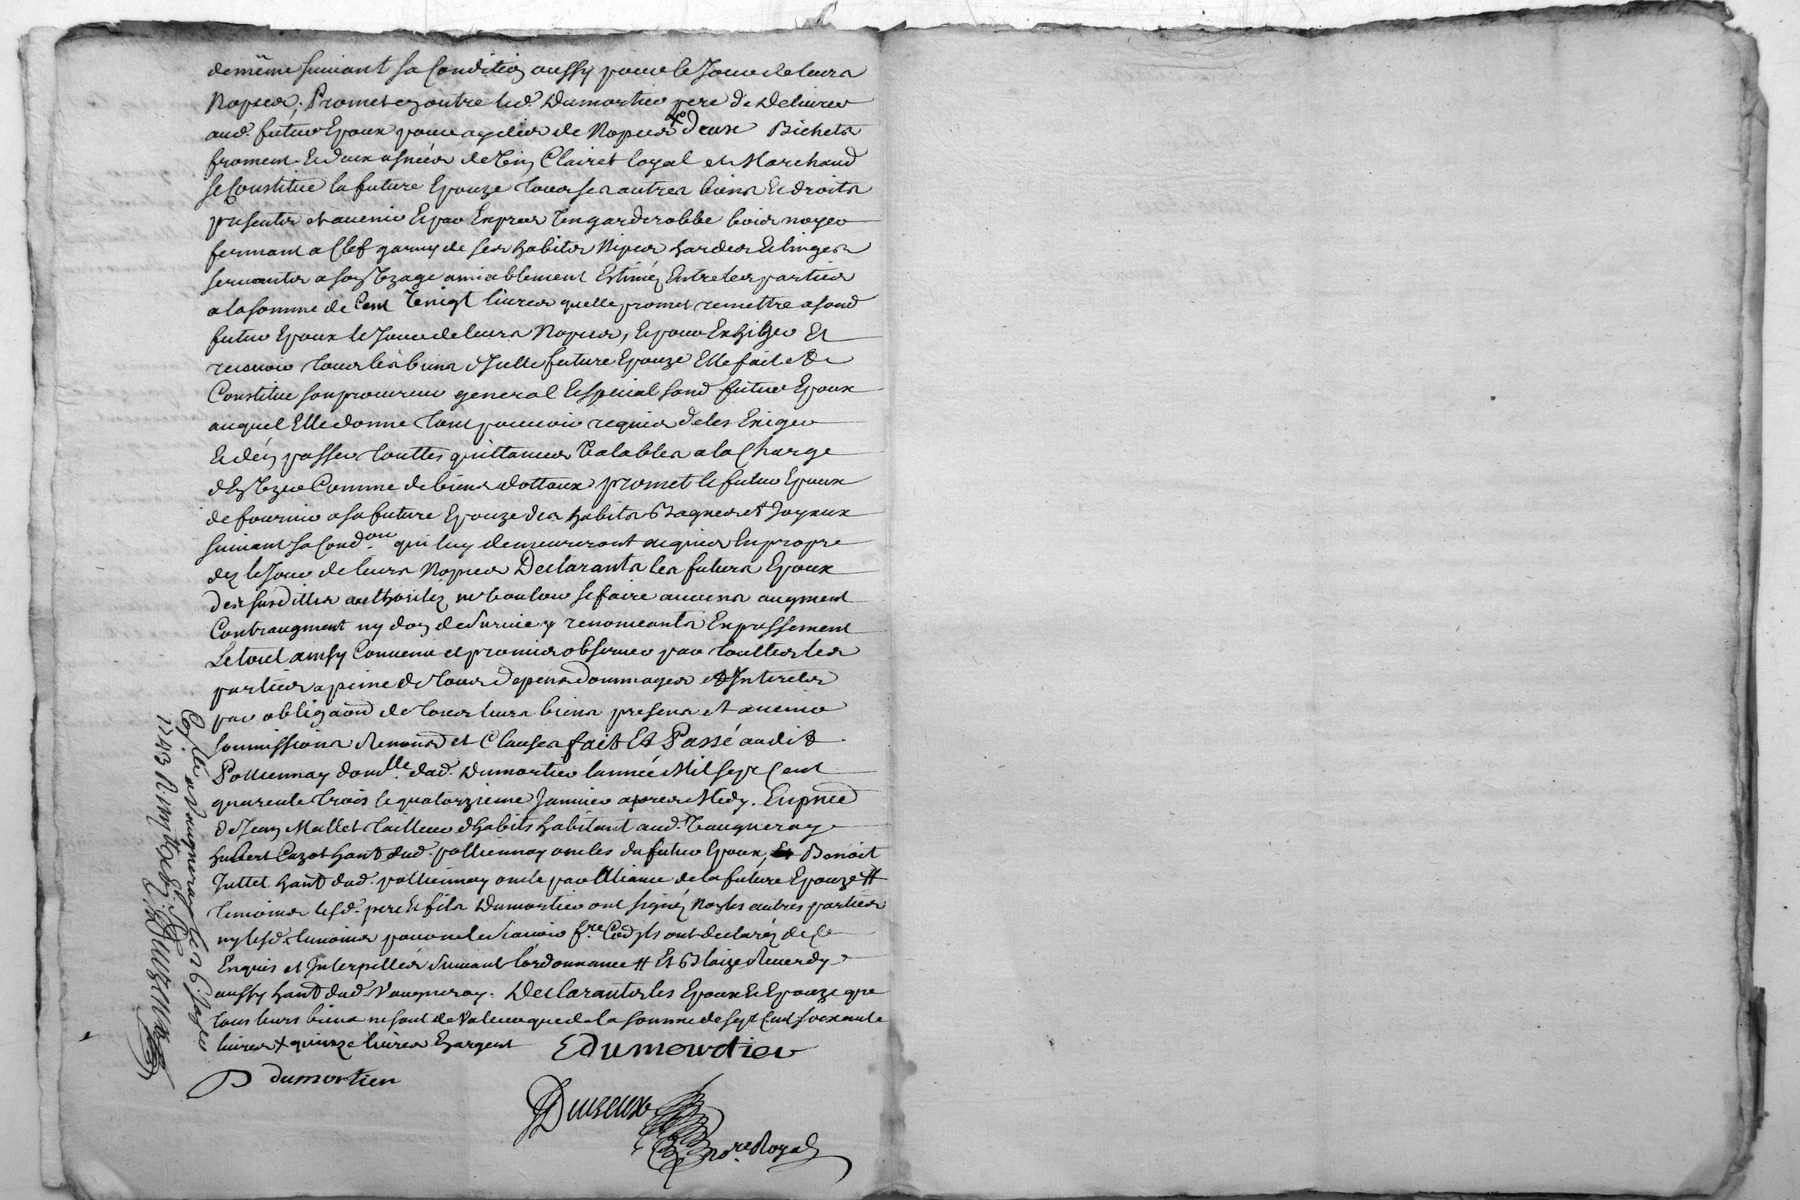 de même suivant sa Condition aussy pour le Jour de leurs
Nopces. Promet en outre led. Dumortier pere de delivrer
aud. futur Epoux pour aydier de Nopces deux Bichets
froment Et deux asnées de Vin Clairet loyal et Marchand
se Constitue la future Epouze tous ses autres biens Et droits
presents et avenir Et par Expres Un garderobbe bois noyer
fermant a Clef garny de ses habits Nipes hardes Et linges
servants a son Uzage amiablement Estimés Entre les parties
a la somme de Cent Vingt livres quelle promet remettre a sond
futur Epoux le Jour de leurs Nopces, Et pour Exhiger Et
recevoir tous les biens d'Jcelle future Epouze Elle fait Et
Constitue son procureur general Et special sond futur Epoux
auquel Elle donne tout pouvoir requis de les Exiger
Et d'en passer touttes quittances Valables a la Charge
d'En Uzer Comme de biens dottaux promet le futur Epoux
de fournir a sa future Epouze des habits Bagues et Joyaux
suivant sa Condon qui luy demeureront acquis En propre
dez le Jour de leurs Nopces Declarants les futurs Epoux
des susdittes authoritez ne vouloir se faire aucuns augment
Contraugment ny don de survie y renonceants Expressement
Le tout ainsy Convenu et promis observer par touttes les
parties a peine de tous depens dommages et Interets
par obligaōn de tous leurs biens presens et avenir
soumissions Renonsōn et Clauses fait Et Passé audit
Pollionnay domlle. dud. Dumortier lannée Mil sept Cent
quarente trois le quatorzieme Janvier apres Midy. En pnce
de Jean Mallet tailleur d'habits habitant aud. Vaugneray
Hubert Cazot hant dud. pollionnay oncles du futur Epoux, Benoit
Juttet hant dud. pollionnay oncle par alliance de la future Epouze #
temoins lesd. pere Et fils Dumortier ont signéz Non les autres parties
ny lesd. temoins pour ne le scavoir fre. Co'ils ont declaréz de ce
Enquis et Interpellés suivant lordonnance # Et Blaize Reverdy
aussy hant dud Vaugneray. Declarants les Epoux Et Epouze que
tous leurs biens ne sont de Valeur que de la somme de sept Cent soixante
livres + quinze livres En argent
E dumourtier
P dumortier
Dureux
nore. Royal
Con.lé a Vaugneray le 26 Janvier
1743